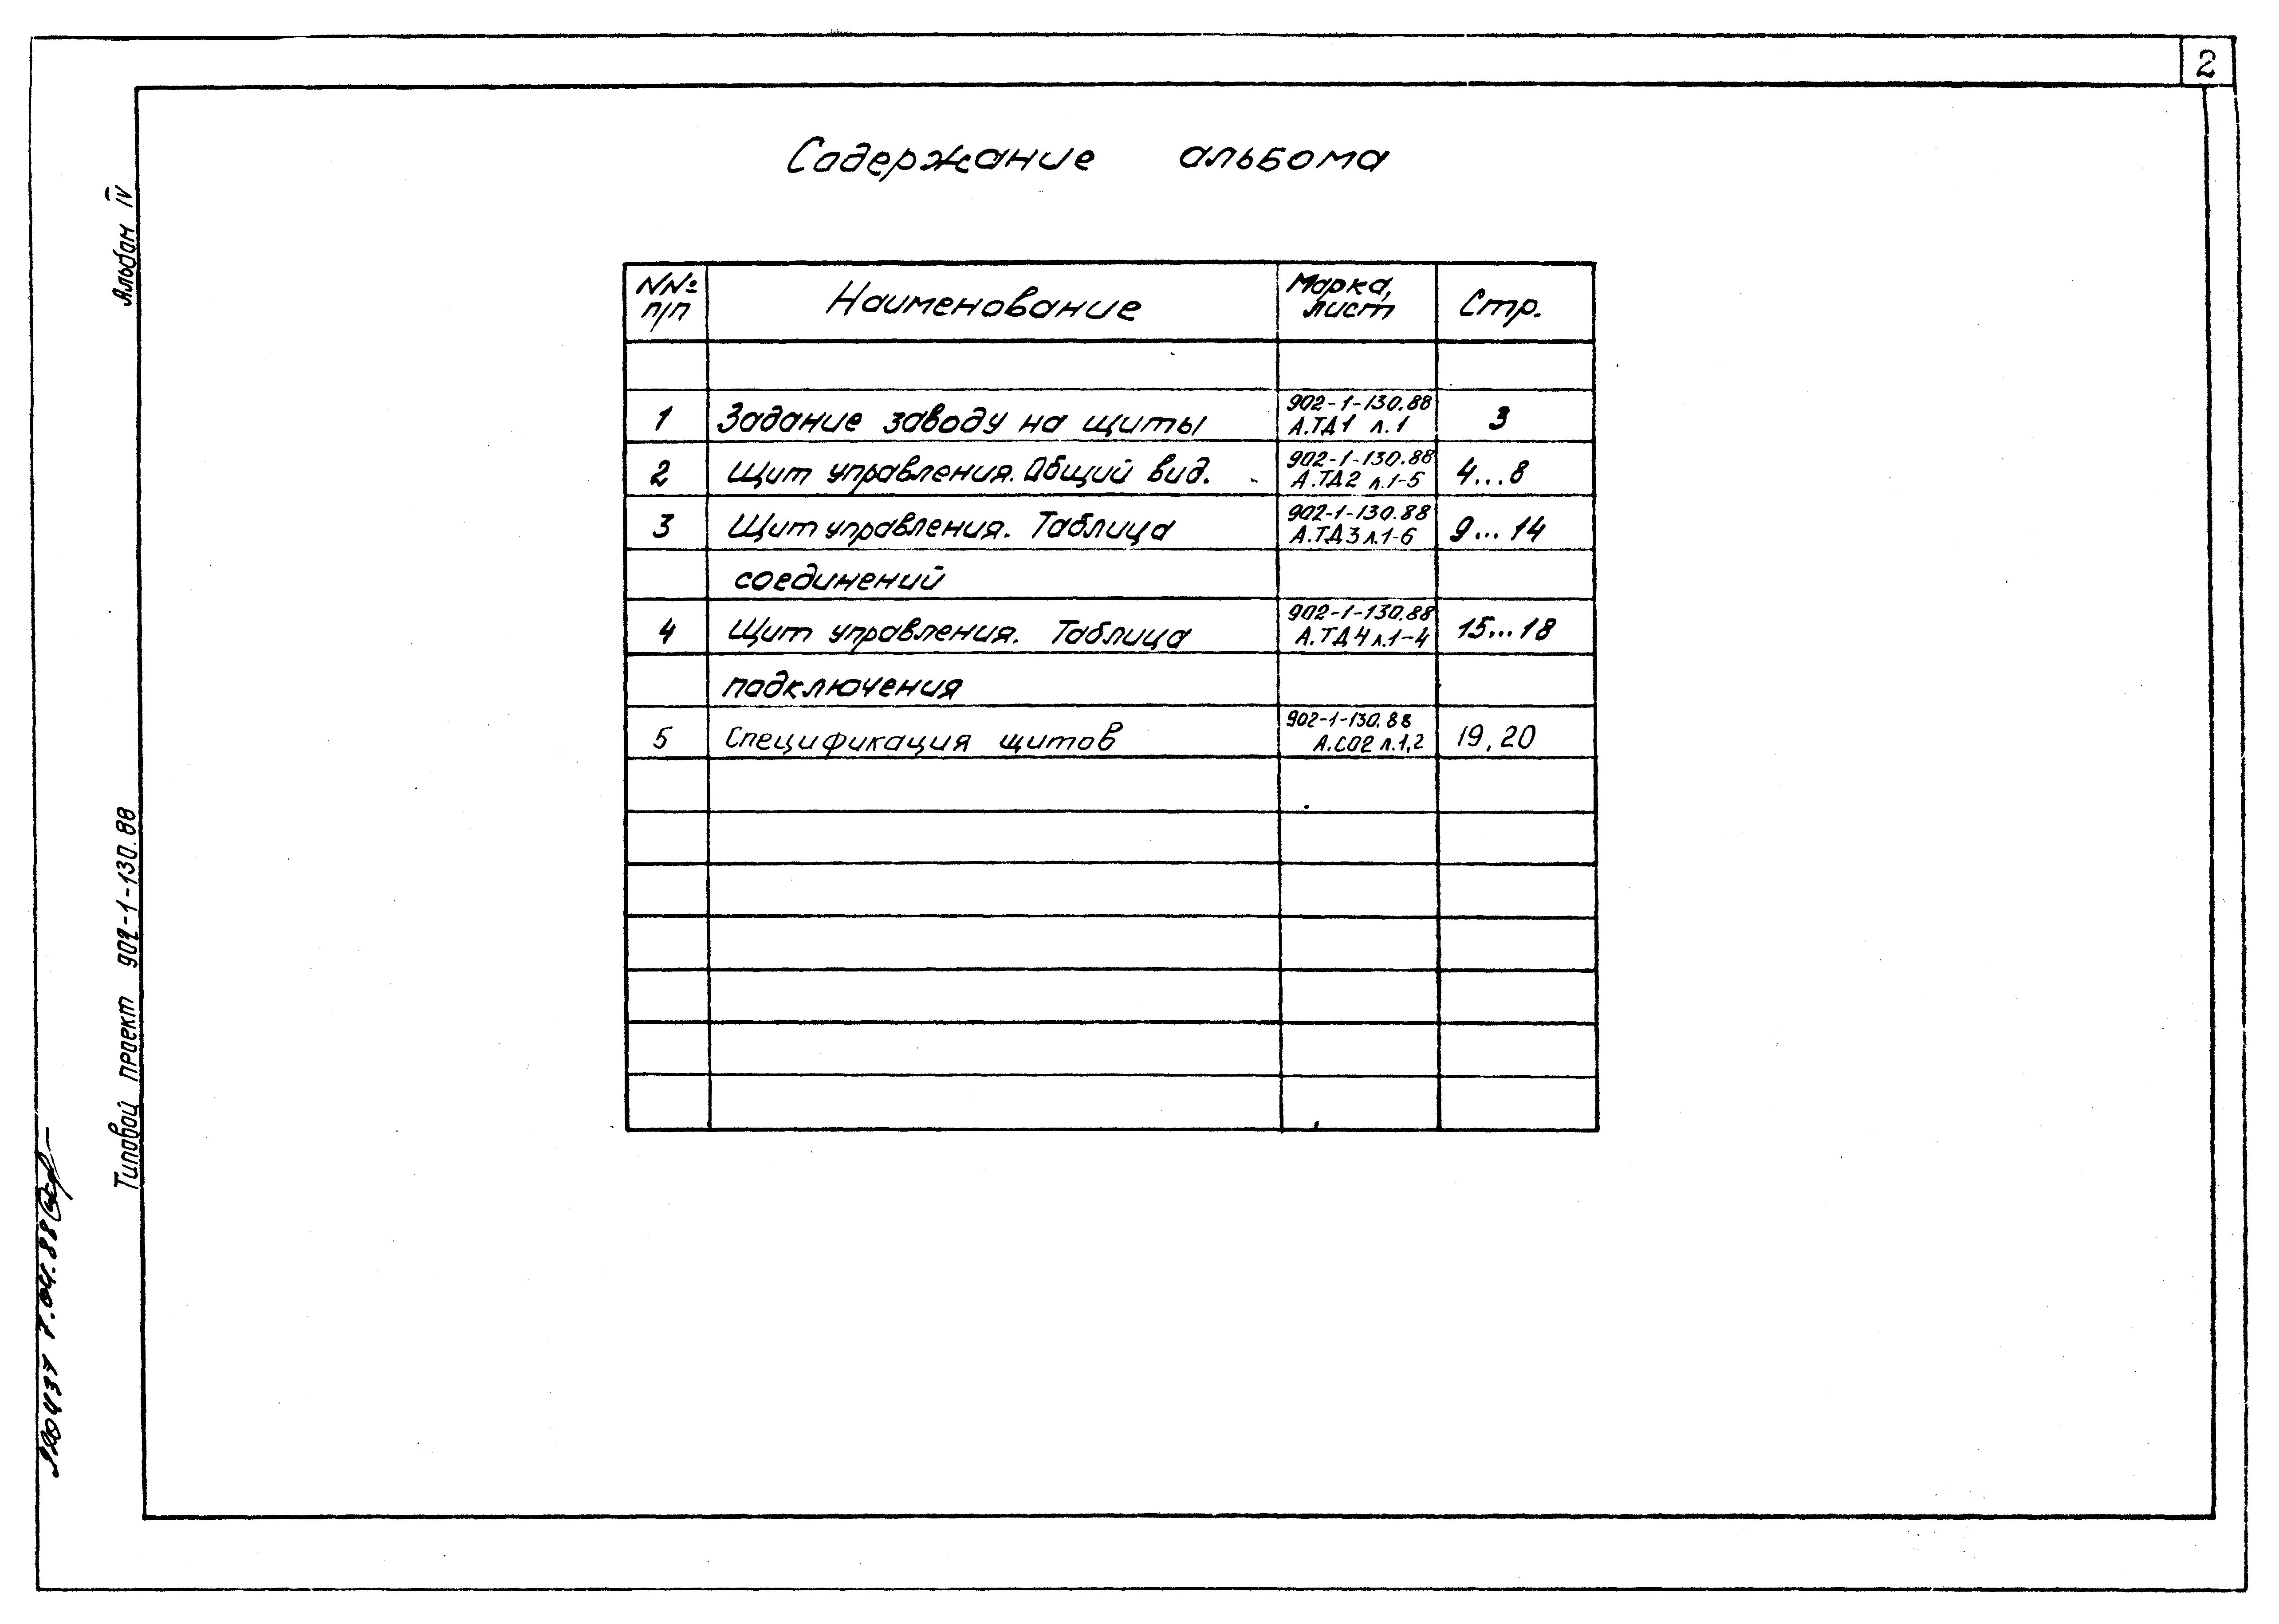 2
Содержание альбома
Альбом IV
Типовой проект 902-1-130.88
NNº п/п
Наименование
Марка, лист
Стр.
1 Задание заводу на щиты 902-1-130.88 А.ТД1 л.1 3
2 Щит управления. Общий вид. 902-1-130.88 А.ТД2 л.1-5 4...8
3 Щит управления. Таблица 902-1-130.88 А.ТД3 л.1-6 9...14
соединений
4 Щит управления. Таблица 902-1-130.88 А.ТД4 л.1-4 15...18
подключения
5 Спецификация щитов 902-1-130.88 А.СО2 л.1,2 19,20